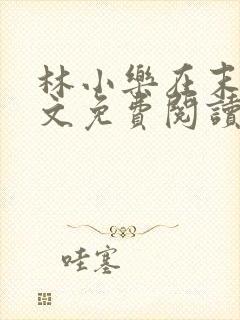 林小樂在末
文免費閱讀
哇塞